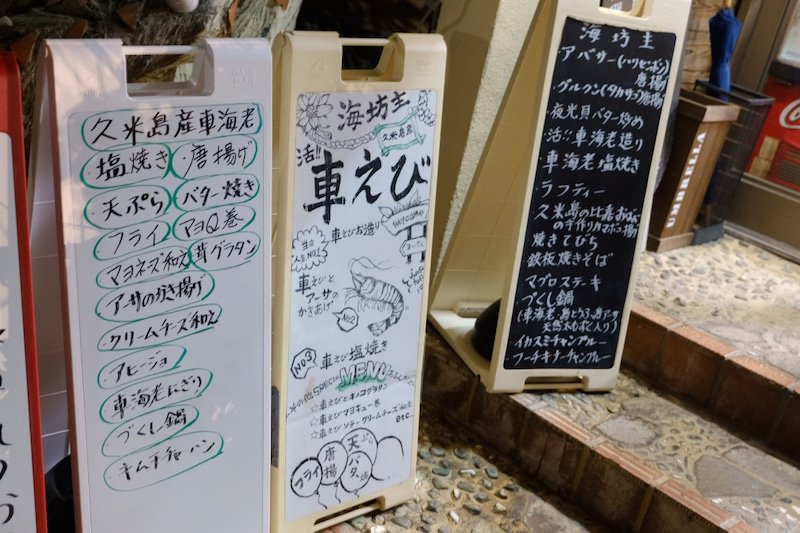 久米島産車海老
塩焼き 唐揚げ
天ぷら バター焼き
フライ マヨQ巻
マヨネーズ和え 茸グラタン
アーサのかき揚げ
クリームチーズ和え
アヒージョ
車海老にぎり
づくし鍋
キムチチャーハン
海坊主
久米島産
活!! 車えび
WELCOME
車えびお造り
人気NO.1
車えびと
アーサの
かきあげ
NO2
NO3 車えび塩焼き
その他SPECIAL MENU
☆車えびとキノコグラタン
☆車えびマヨキュー巻
☆車えびソテークリームチーズ和え
etc...
フライ 唐揚 天ぷら バター焼
海坊主
・アバサー(ハリセンボン)
唐揚
・グルクン(タカサゴ)唐揚
・夜光貝バター炒め
・活!! 車海老造り
・車海老塩焼き
・ラフティー
・久米島の比嘉おばぁ
の手作りカマボコ揚げ
・焼きてびち
・鉄板焼きそば
・マグロステーキ
・づくし鍋
(車海老、島とうふ、島アーサ
天然太もずく入り)
・イカスミチャンプルー
・フーチキナーチャンプルー
UMBRELLA